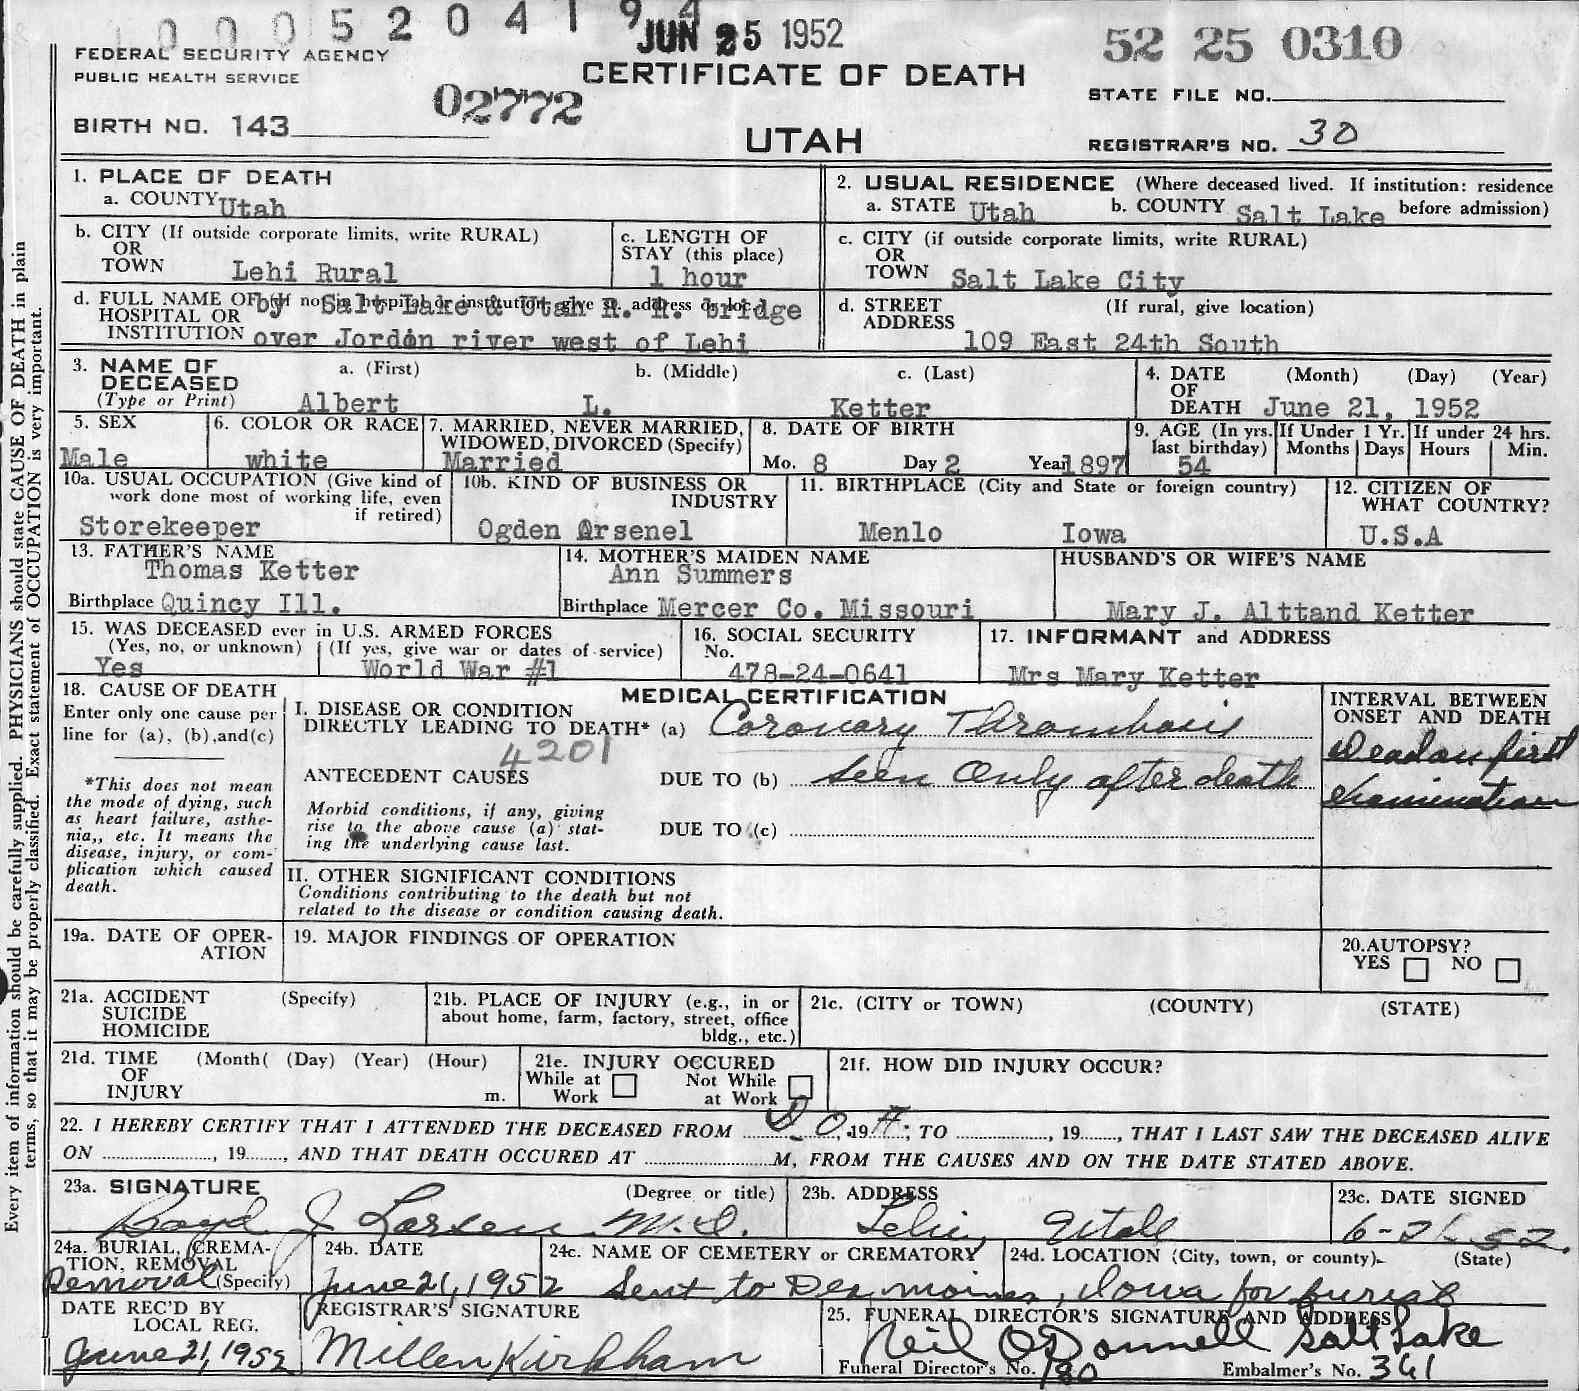 0 0 0 5 2 0 4 1 9 4
JUN 25 1952
52 25 0310
FEDERAL SECURITY AGENCY
PUBLIC HEALTH SERVICE
CERTIFICATE OF DEATH
STATE FILE NO.
02772
BIRTH NO. 143
UTAH
REGISTRAR'S NO. 30
1. PLACE OF DEATH
a. COUNTY Utah
2. USUAL RESIDENCE (Where deceased lived. If institution: residence before admission)
a. STATE Utah b. COUNTY Salt Lake
b. CITY (If outside corporate limits, write RURAL)
OR
TOWN Lehi Rural
c. LENGTH OF
STAY (this place)
1 hour
c. CITY (if outside corporate limits, write RURAL)
OR
TOWN Salt Lake City
d. FULL NAME OF (If not in hospital or institution, give st. address or loc.)
HOSPITAL OR
INSTITUTION
by Salt Lake & Utah R. R. bridge
over Jordon river west of Lehi
d. STREET (If rural, give location)
ADDRESS
109 East 24th South
3. NAME OF
DECEASED
(Type or Print)
a. (First) b. (Middle) c. (Last)
Albert L. Ketter
4. DATE (Month) (Day) (Year)
OF
DEATH June 21, 1952
5. SEX
Male
6. COLOR OR RACE
white
7. MARRIED, NEVER MARRIED,
WIDOWED, DIVORCED (Specify)
Married
8. DATE OF BIRTH
Mo. 8 Day 2 Year 1897
9. AGE (In yrs.
last birthday)
54
If Under 1 Yr.
Months Days
If under 24 hrs.
Hours Min.
10a. USUAL OCCUPATION (Give kind of
work done most of working life, even
if retired)
Storekeeper
10b. KIND OF BUSINESS OR
INDUSTRY
Ogden Arsenel
11. BIRTHPLACE (City and State or foreign country)
Menlo Iowa
12. CITIZEN OF
WHAT COUNTRY?
U.S.A
13. FATHER'S NAME
Thomas Ketter
Birthplace Quincy Ill.
14. MOTHER'S MAIDEN NAME
Ann Summers
Birthplace Mercer Co. Missouri
HUSBAND'S OR WIFE'S NAME
Mary J. Alttand Ketter
15. WAS DECEASED ever in U.S. ARMED FORCES
(Yes, no, or unknown) (If yes, give war or dates of service)
Yes World War #1
16. SOCIAL SECURITY
No.
478-24-0641
17. INFORMANT and ADDRESS
Mrs Mary Ketter
18. CAUSE OF DEATH
Enter only one cause per
line for (a), (b), and (c)
*This does not mean
the mode of dying, such
as heart failure, asthe-
nia,, etc. It means the
disease, injury, or com-
plication which caused
death.
MEDICAL CERTIFICATION
I. DISEASE OR CONDITION
DIRECTLY LEADING TO DEATH* (a) Coronary Thrombosis
4201
ANTECEDENT CAUSES
DUE TO (b) Seen Only after death
Morbid conditions, if any, giving
rise to the above cause (a) stat-
ing the underlying cause last.
DUE TO (c)
INTERVAL BETWEEN
ONSET AND DEATH
Dead on first
examination
II. OTHER SIGNIFICANT CONDITIONS
Conditions contributing to the death but not
related to the disease or condition causing death.
19a. DATE OF OPER-
ATION
19. MAJOR FINDINGS OF OPERATION
20. AUTOPSY?
YES NO
21a. ACCIDENT (Specify)
SUICIDE
HOMICIDE
21b. PLACE OF INJURY (e.g., in or
about home, farm, factory, street, office
bldg., etc.)
21c. (CITY or TOWN) (COUNTY) (STATE)
21d. TIME (Month( (Day) (Year) (Hour)
OF
INJURY m.
21e. INJURY OCCURED
While at Work Not While at Work
21f. HOW DID INJURY OCCUR?
22. I HEREBY CERTIFY THAT I ATTENDED THE DECEASED FROM D O, 19 A; TO , 19 , THAT I LAST SAW THE DECEASED ALIVE
ON , 19 , AND THAT DEATH OCCURED AT M, FROM THE CAUSES AND ON THE DATE STATED ABOVE.
23a. SIGNATURE (Degree or title)
Boyd J Larsen M.D.
23b. ADDRESS
Lehi, Utah
23c. DATE SIGNED
24a. BURIAL, CREMA-
TION, REMOVAL
(Specify)
Removal
24b. DATE
June 21, 1952
24c. NAME OF CEMETERY or CREMATORY
24d. LOCATION (City, town, or county) (State)
Sent to Des moines, Iowa for burial
DATE REC'D BY
LOCAL REG.
June 21, 1952
REGISTRAR'S SIGNATURE
Millen Kirkham
25. FUNERAL DIRECTOR'S SIGNATURE AND ADDRESS
Neil O'Donnell Salt Lake
Funeral Director's No. 180 Embalmer's No. 361
Every item of information should be carefully supplied. PHYSICIANS should state CAUSE OF DEATH in plain
terms, so that it may be properly classified. Exact statement of OCCUPATION is very important.